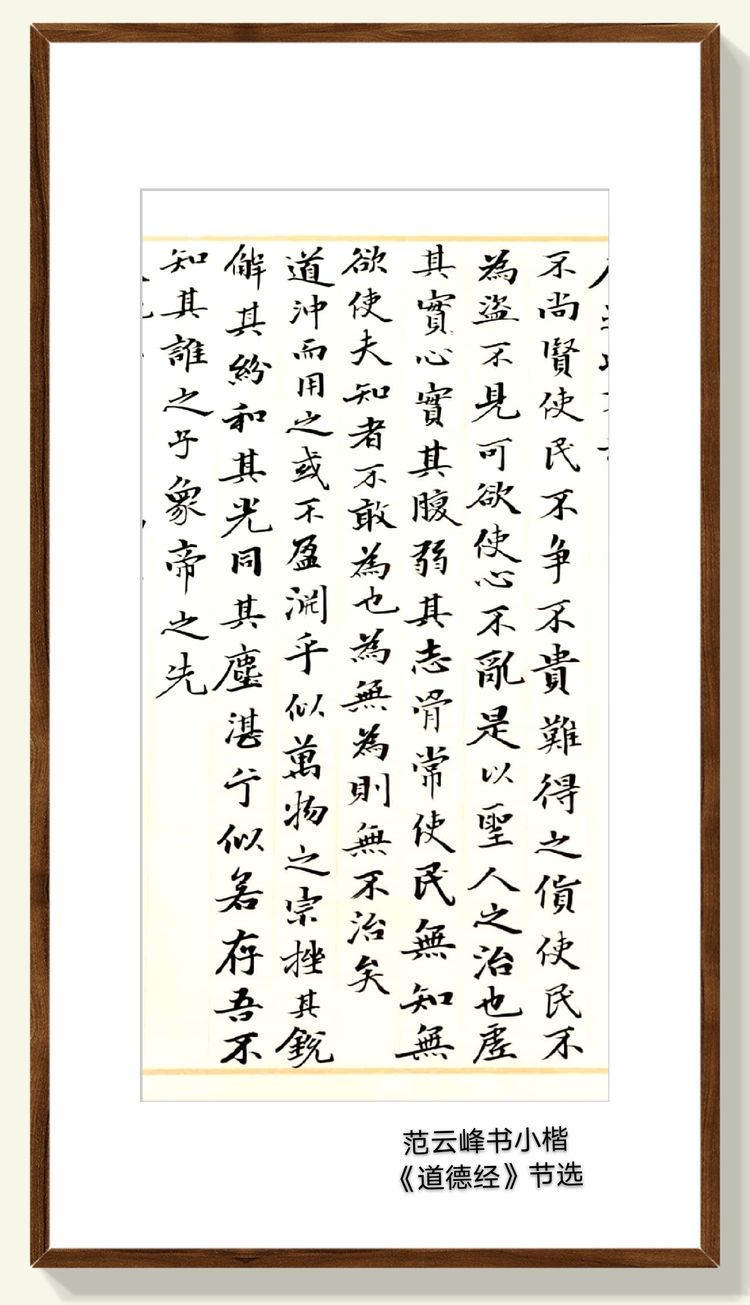 不尚賢使民不争不貴難得之貨使民不
為盗不見可欲使心不亂是以聖人之治也虚
其實心實其腹弱其志骨常使民無知無
欲使夫知者不敢為也為無為則無不治矣
道沖而用之或不盈淵乎似萬物之宗挫其銳
解其紛和其光同其塵湛兮似若存吾不
知其誰之子象帝之先
范云峰书小楷
《道德经》节选